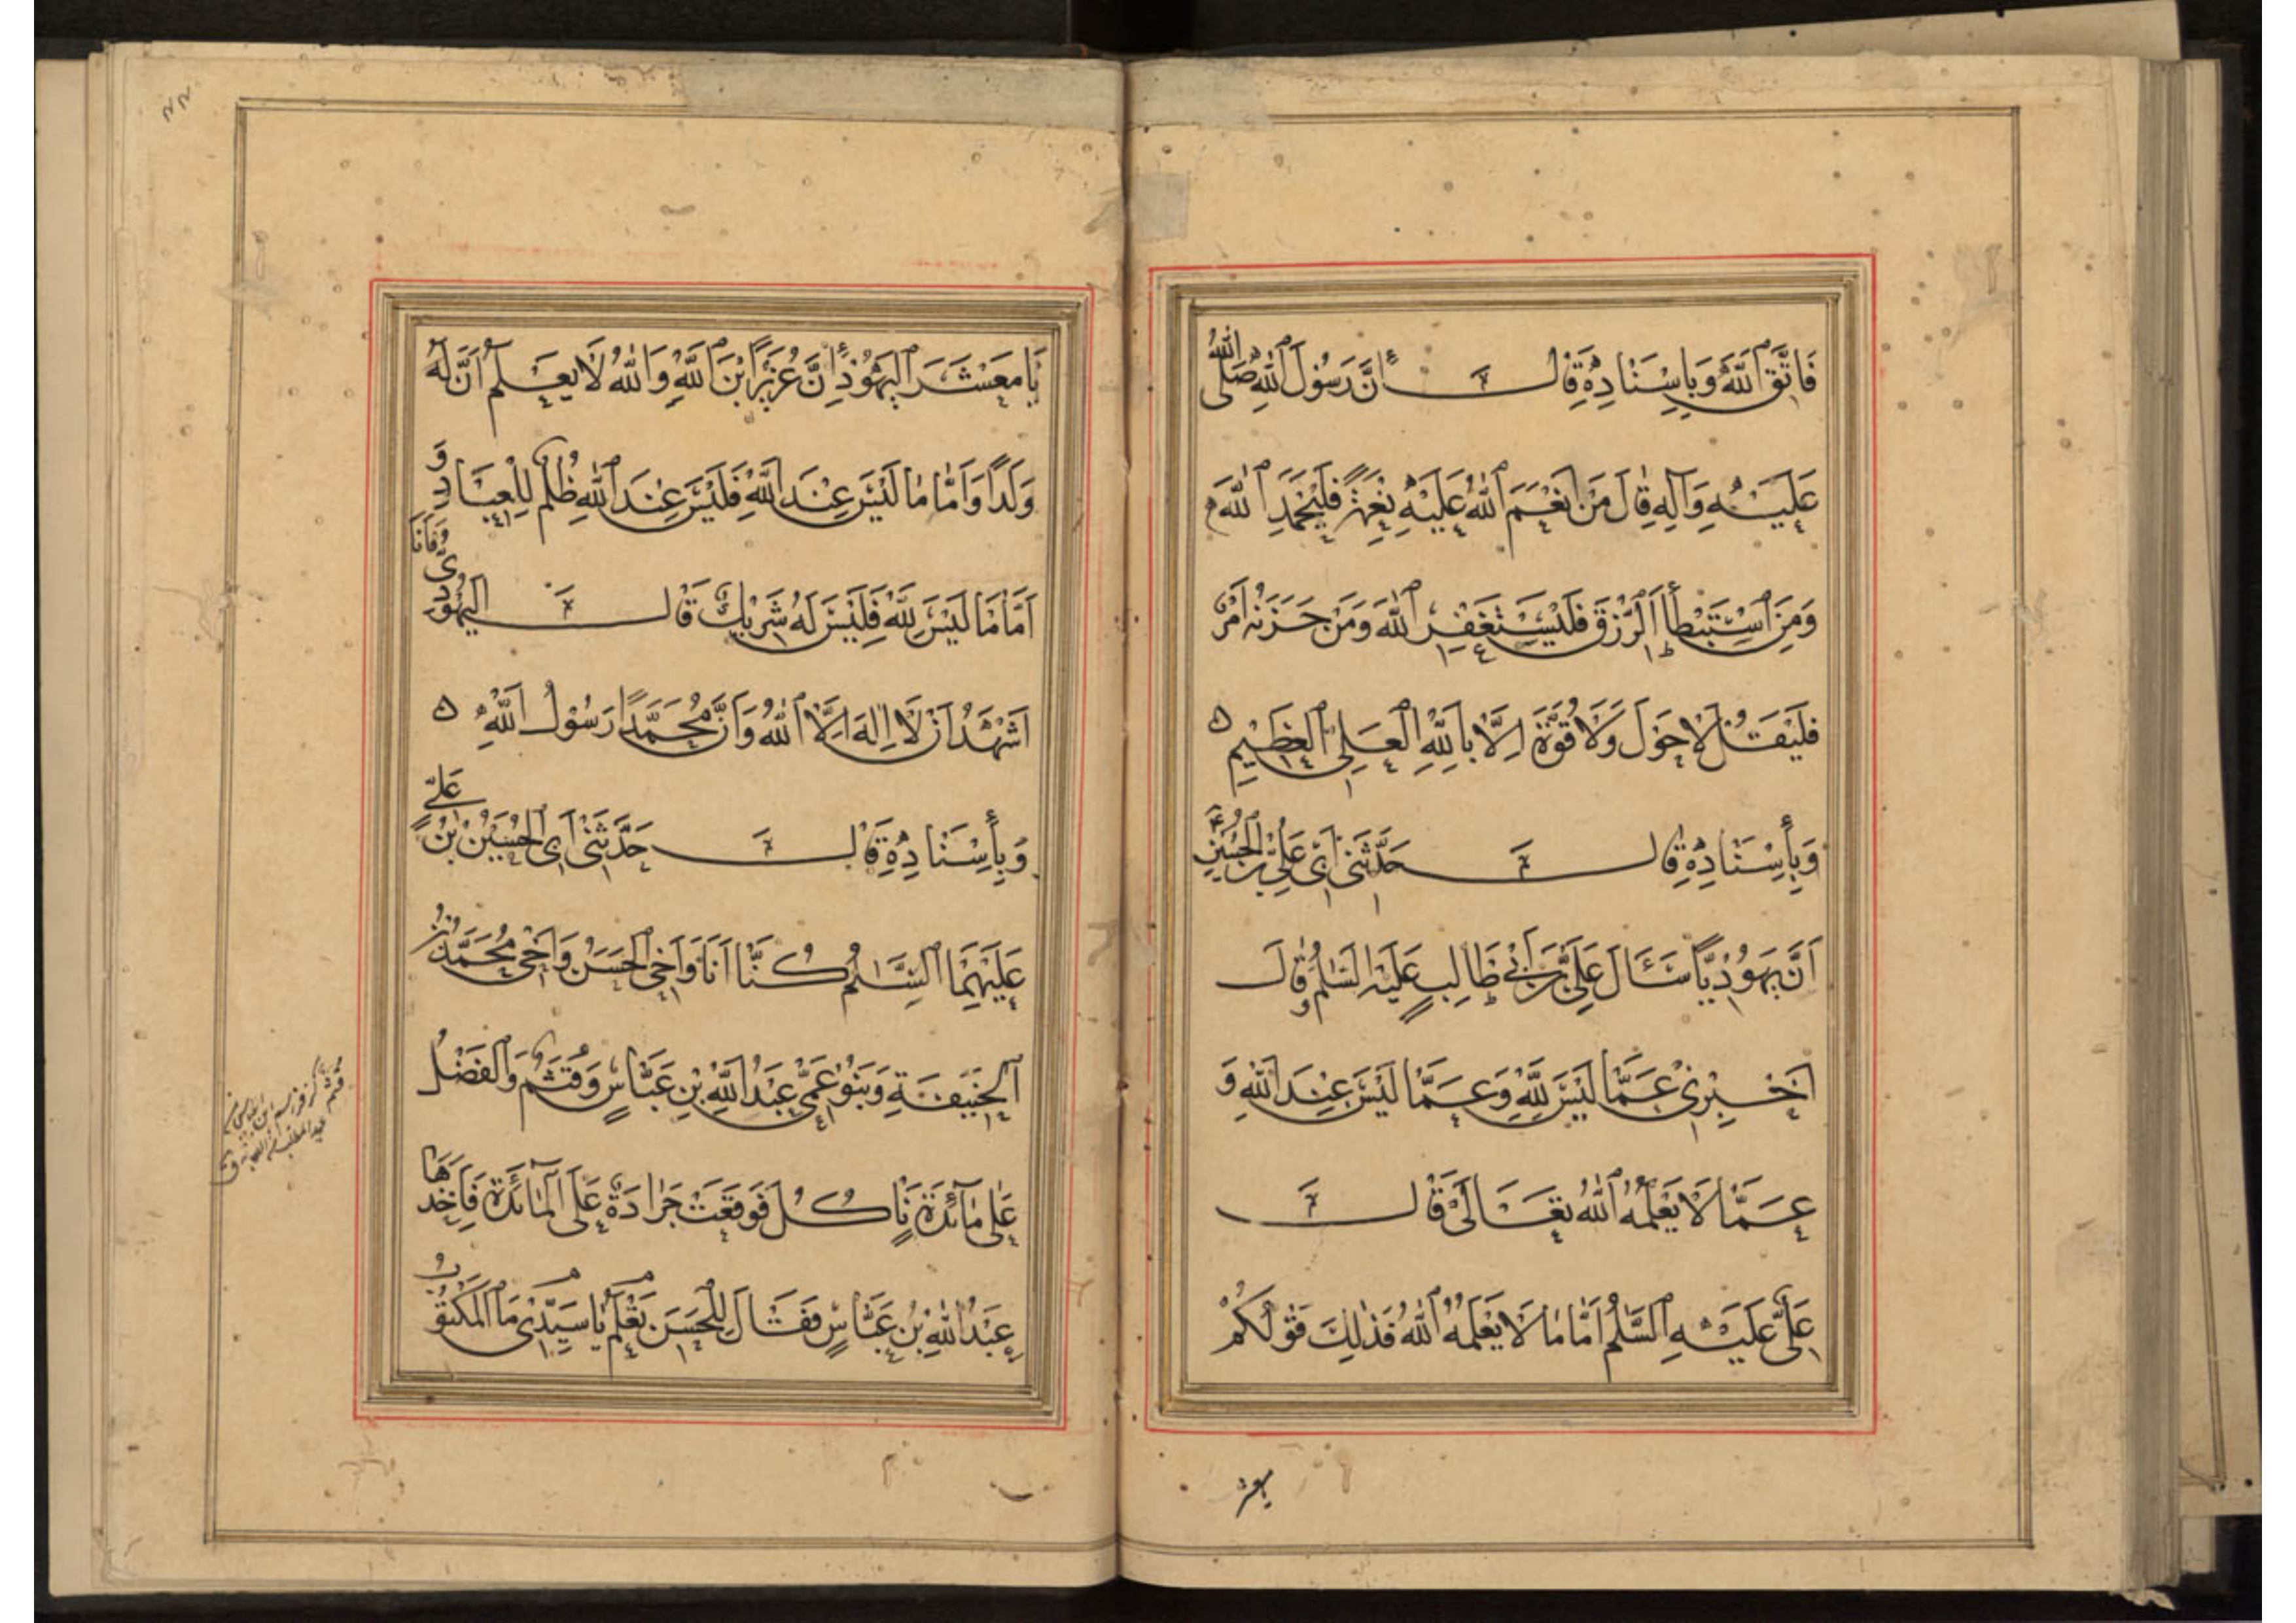 فَاتَّقِ ٱللَّهَ وَبِإِسْنَادِهِ قَالَ إِنَّ رَسُولَ ٱللَّهِ صَلَّى ٱللَّهُ
عَلَيْهِ وَآلِهِ قَالَ مَنْ أَنْعَمَ ٱللَّهُ عَلَيْهِ نِعْمَةً فَلْيَحْمَدِ ٱللَّهَ
وَمَنِ ٱسْتَبْطَأَ ٱلرِّزْقَ فَلْيَسْتَغْفِرِ ٱللَّهَ وَمَنْ حَزَنَهُ أَمْرٌ
فَلْيَقُلْ لَا حَوْلَ وَلَا قُوَّةَ إِلَّا بِٱللَّهِ ٱلْعَلِيِّ ٱلْعَظِيمِ
وَبِإِسْنَادِهِ قَالَ حَدَّثَنِي أَبِي عَلِيُّ بْنُ ٱلْحُسَيْنِ
أَنَّ يَهُودِيًّا سَئَالَ عَلِيَّ بْنَ أَبِي طَالِبٍ عَلَيْهِ السَّلَامُ وَقَالَ
أَخْبِرْنِي عَمَّا لَيْسَ لِلَّهِ وَعَمَّا لَيْسَ عِنْدَ ٱللَّهِ وَ
عَمَّا لَا يَعْلَمُهُ ٱللَّهُ تَعَالَى قَالَ
عَلِيٌّ عَلَيْهِ ٱلسَّلَامُ أَمَّا مَا لَا يَعْلَمُهُ ٱللَّهُ فَذَلِكَ قَوْلُكُمْ
يَا مَعْشَرَ ٱلْيَهُودِ إِنَّ عُزَيْرًا ٱبْنُ ٱللَّهِ وَٱللَّهُ لَا يَعْلَمُ أَنَّ لَهُ
وَلَدًا وَأَمَّا مَا لَيْسَ عِنْدَ ٱللَّهِ فَلَيْسَ عِنْدَ ٱللَّهِ ظُلْمٌ لِلْعِبَادِ وَ
أَمَّا مَا لَيْسَ لِلَّهِ فَلَيْسَ لَهُ شَرِيكٌ قَالَ الْيَهُودِيُّ وَأَنَا
أَشْهَدُ أَنْ لَا إِلَهَ إِلَّا ٱللَّهُ وَأَنَّ مُحَمَّدًا رَسُولُ ٱللَّهِ
وَبِإِسْنَادِهِ قَالَ حَدَّثَنِي أَبِي ٱلْحُسَيْنُ بْنُ عَلِيٍّ
عَلَيْهِمَا ٱلسَّلَامُ كُنَّا أَنَا وَأَخِي ٱلْحَسَنُ وَأَخِي مُحَمَّدُ بْنُ
ٱلْحَنَفِيَّةِ وَبَنُو عَمِّي عَبْدُ ٱللَّهِ بْنِ عَبَّاسٍ وَقُثَمُ وَٱلْفَضْلُ
عَلَى مَائِدَةٍ نَأْكُلُ فَوَقَعَتْ جَرَادَةٌ عَلَى ٱلْمَائِدَةِ فَأَخَذَهَا
عَبْدُ ٱللَّهِ بْنُ عَبَّاسٍ فَقَالَ لِلْحَسَنِ تَعْلَمُ يَا سَيِّدِي مَا ٱلْمَكْتُوبُ